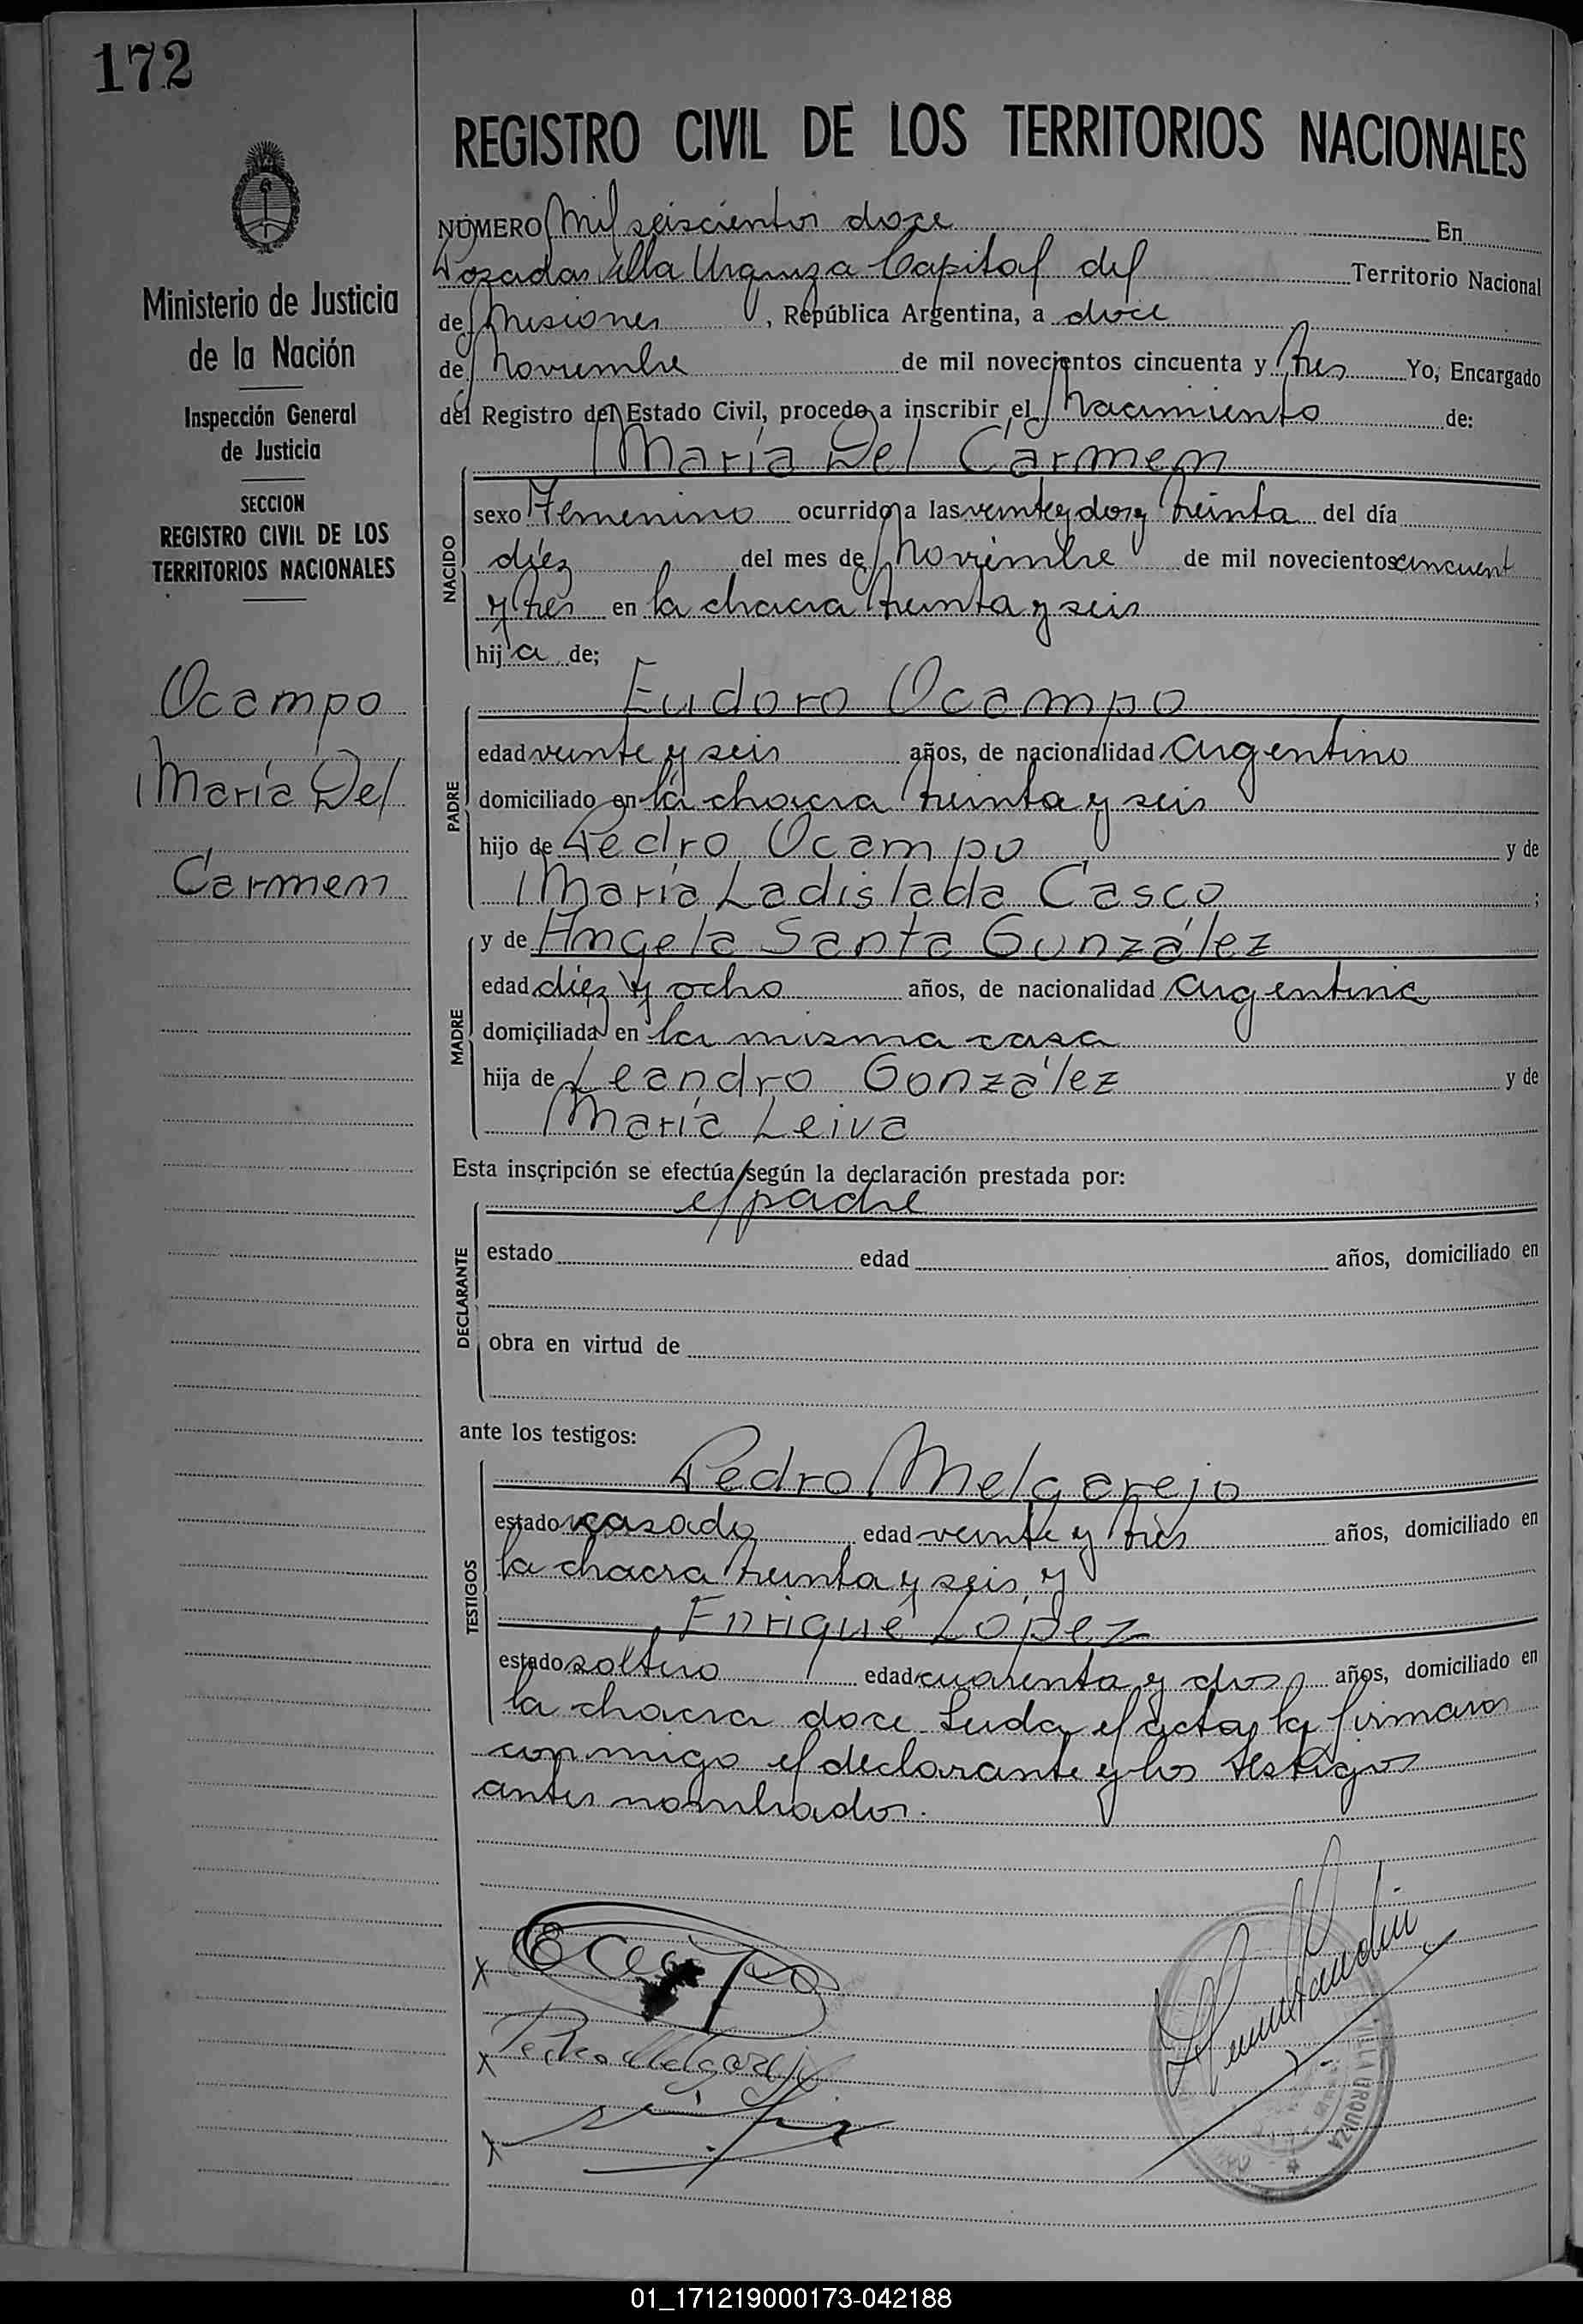 172
REGISTRO CIVIL DE LOS TERRITORIOS NACIONALES
Ministerio de Justicia
de la Nación
Inspección General
de Justicia
SECCION
REGISTRO CIVIL DE LOS
TERRITORIOS NACIONALES
Ocampo
María Del
Carmen
NÚMERO Mil seiscientos doce En
Posadas Villa Urquiza Capital del Territorio Nacional
de Misiones, República Argentina, a doce
de Noviembre de mil novecientos cincuenta y tres Yo, Encargado
del Registro del Estado Civil, procedo a inscribir el Nacimiento de:
María Del Carmen
NACIDO
sexo Femenino ocurrido a las veinte y dos y treinta del día
diez del mes de Noviembre de mil novecientos cincuent
y tres en la chacra treinta y seis
hija de;
Eudoro Ocampo
PADRE
edad veinte y seis años, de nacionalidad argentino
domiciliado en la chacra treinta y seis
hijo de Pedro Ocampo y de
María Ladislada Casco;
y de Angela Santa González
MADRE
edad diez y ocho años, de nacionalidad argentina
domiciliada en la misma casa
hija de Leandro González y de
María Leiva
Esta inscripción se efectúa según la declaración prestada por:
el padre
DECLARANTE
estado edad años, domiciliado en
obra en virtud de
ante los testigos:
Pedro Melgarejo
TESTIGOS
estado casado edad veinte y tres años, domiciliado en
la chacra treinta y seis, y
Enrique López
estado soltero edad cuarenta y dos años, domiciliado en
la chacra doce. Leida el acta, la firmaron
conmigo el declarante y los testigos
antes nombrados.
x Ocampo
x Pedro Melgarejo
x
VILLA URQUIZA
01_171219000173-042188